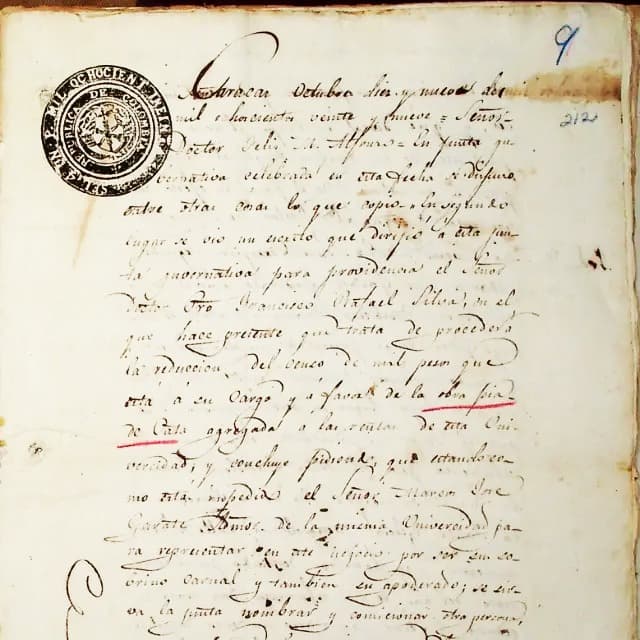 9
212
REPUBLICA DE COLOMBIA
Caracas Octubre diez y nueve de
mil ochocientos veinte y nueve = Señor
Doctor Felix M. Alfonso = En Junta gu-
vernativa celebrada en esta fecha se dispuso
entre otras cosas lo que copio = En segundo
lugar se vio un escrito que dirijió á esta Jun-
ta guvernativa para providencia el Señor
Doctor Pro Francisco Rafael Silva, en el
que hace presente que trata de proceder á
la reduccion del censo de mil pesos que
está á su cargo y á favor de la obra pia
de Cata agregada á las rentas de esta Uni-
vercidad, y concluye pidiendo, que estando co-
mo está impedido el Señor Marcos José
Garate Admor. de la misma Univercidad pa-
ra representar en este negocio por ser su so-
brino carnal y tambien su apoderado, se sir-
va la Junta nombrar y comicionar otra persona,